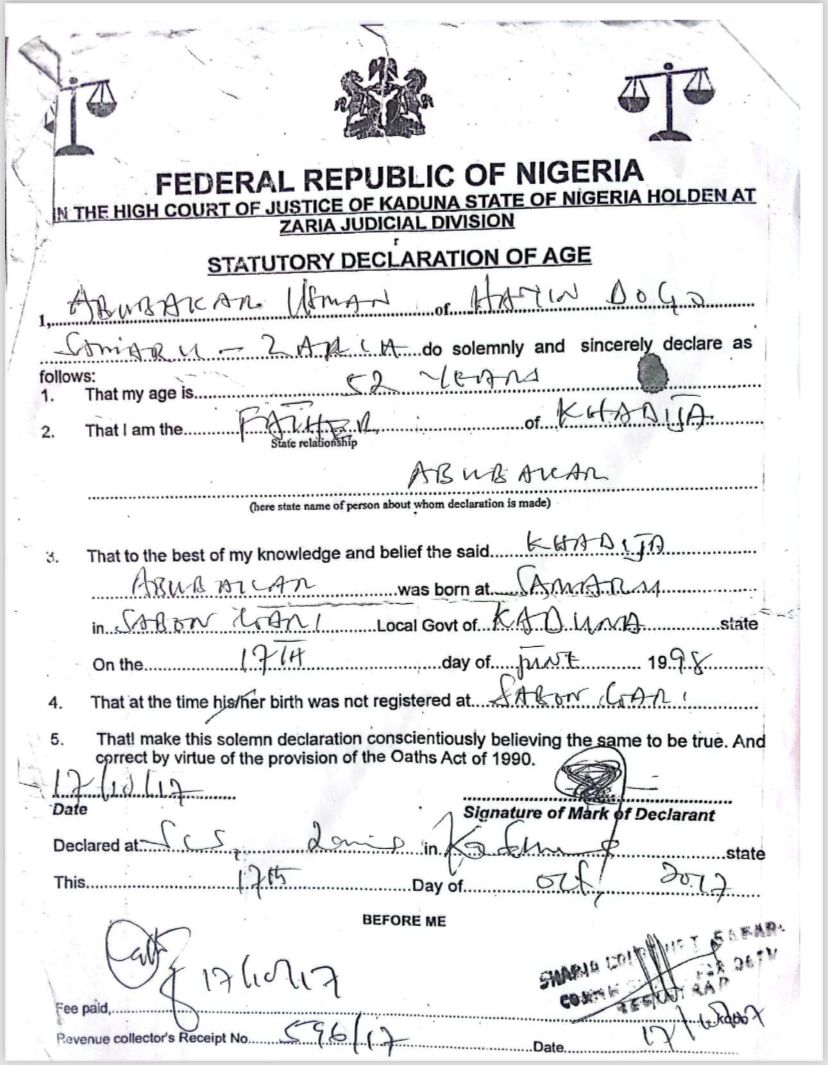 FEDERAL REPUBLIC OF NIGERIA
IN THE HIGH COURT OF JUSTICE OF KADUNA STATE OF NIGERIA HOLDEN AT
ZARIA JUDICIAL DIVISION
STATUTORY DECLARATION OF AGE
1, ABUBAKAR USMAN of HAYIN DOGO
SAMARU - ZARIA do solemnly and sincerely declare as
follows:
1. That my age is 52 YEARS
2. That I am the FATHER of KHADIJA
State relationship
ABUBAKAR
(here state name of person about whom declaration is made)
3. That to the best of my knowledge and belief the said KHADIJA
ABUBAKAR was born at SAMARU
in SABON GARI Local Govt of KADUNA state
On the 17TH day of JUNE 1998
4. That at the time his/her birth was not registered at SABON GARI
5. That! make this solemn declaration conscientiously believing the same to be true. And
correct by virtue of the provision of the Oaths Act of 1990.
17/10/17
Date
Signature of Mark of Declarant
Declared at in Kaduna state
This 17th Day of Oct, 2017
BEFORE ME
17/10/17
SHARIA COURT
Fee paid,
Revenue collector's Receipt No. 596/17 Date